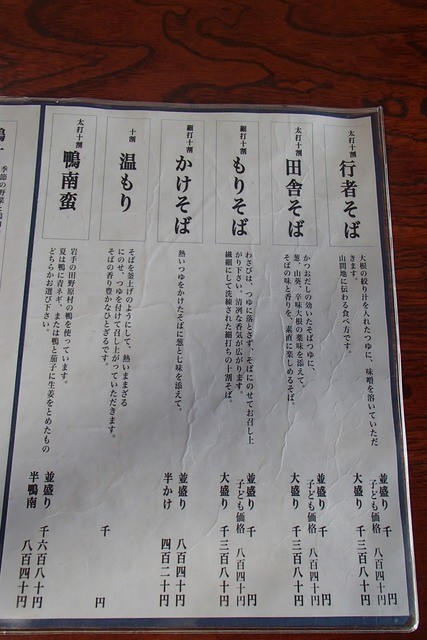 太打十割
行者そば
大根の絞り汁を入れたつゆに、味噌を溶いていただ
きます。
山間地に伝わる食べ方です。
並盛り 千 円
子ども価格 八百四十円
大盛り 千三百八十円
太打十割
田舎そば
かつおだしの効いたそばつゆに、
葱、山葵、辛味大根の薬味を添えて。
そばの味と香りを、素直に楽しめるそば。
並盛り 千 円
子ども価格 八百四十円
大盛り 千三百八十円
細打十割
もりそば
わさびは、つゆに落とさず、そばにのせてお召し上
がり下さい。清冽な香気が広がります。
繊細にして洗練された細打ちの十割そば。
並盛り 千 円
子ども価格 八百四十円
大盛り 千三百八十円
細打十割
かけそば
熱いつゆをかけたそばに葱と七味を添えて。
並盛り 八百四十円
半かけ 四百二十円
十割
温もり
そばを釜上げのようにして、熱いままざる
にのせ、つゆを付けて召し上がっていただきます。
そばの香り豊かなひとざるです。
千 円
太打十割
鴨南蛮
岩手の田野原村の鴨を使っています。
夏は鴨に青ネギ、または鴨と茄子に生姜をとめたもの
どちらかお選び下さい。
並盛り 千六百八十円
半鴨南 八百四十円
季節の野菜と